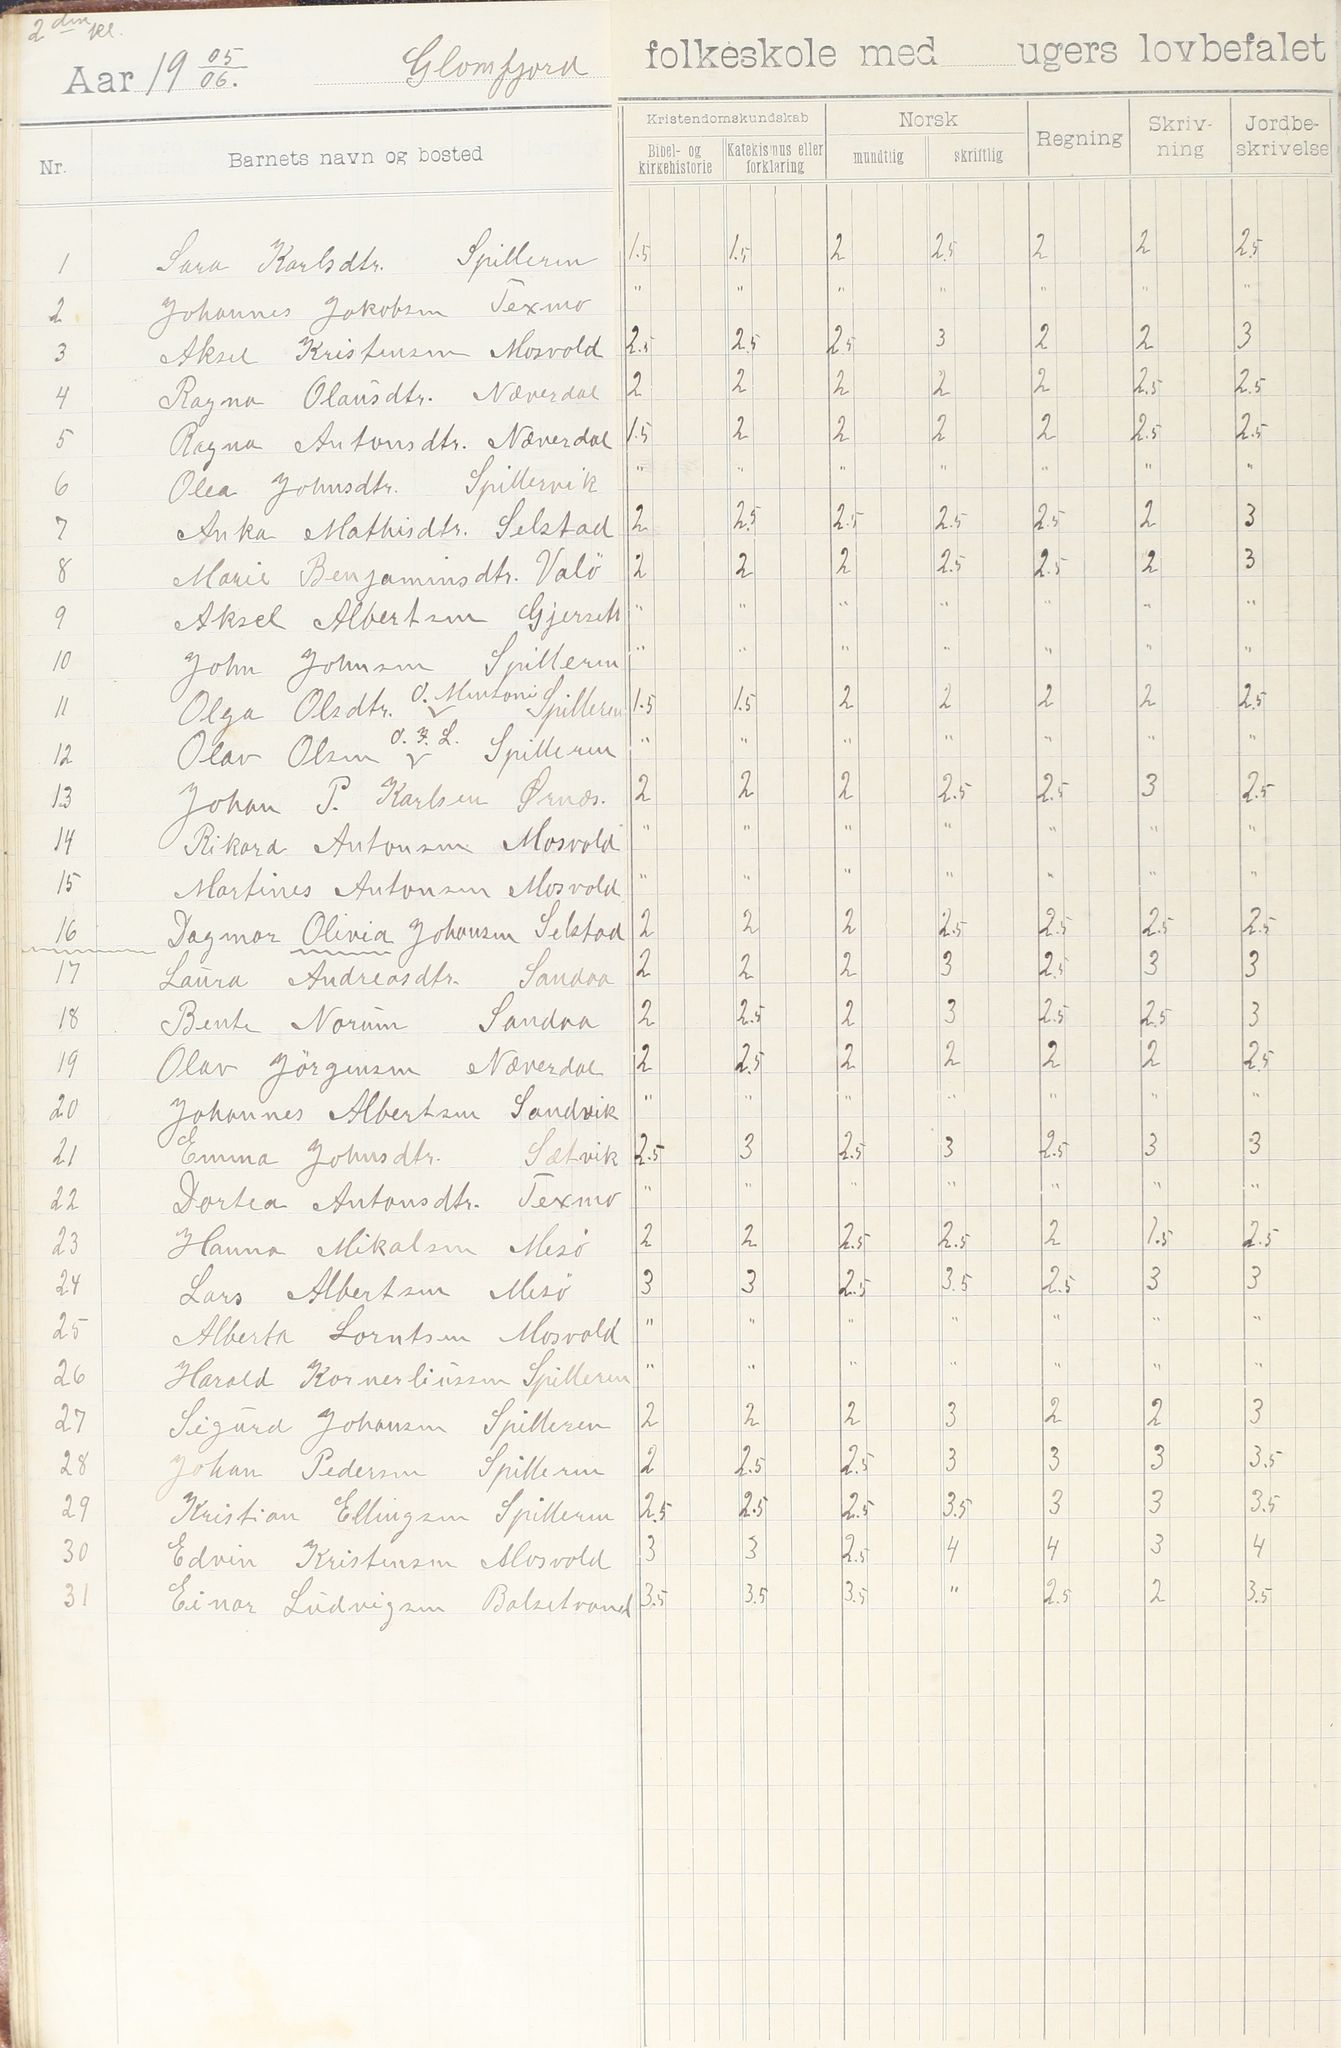 2den kl.
Aar 19 05/06. Glomfjord folkeskole med ugers lovbefalet
Nr. Barnets navn og bosted Kristendomskundskab Norsk Regning Skriv-ning Jordbe-skrivelse
Bibel- og kirkehistorie Katekismus eller forklaring mundtlig skriftlig
1 Sara Karlsdtr. Spilleren 1.5 1.5 2 2.5 2 2 2.5
2 Johannes Jakobsen Texmo " " " " " " "
3 Aksel Kristensen Mosvold 2.5 2.5 2.5 3 2 2 3
4 Ragna Olausdtr. Næverdal 2 2 2 2 2 2.5 2.5
5 Ragna Antonsdtr. Næverdal 1.5 2 2 2 2 2.5 2.5
6 Olea Johnsdtr. Spillervik " " " " " " "
7 Anka Mathisdtr. Selstad 2 2.5 2.5 2.5 2.5 2 3
8 Marie Benjaminsdtr. Valö 2 2 2 2.5 2.5 2 3
9 Aksel Albertsen Gjerset " " " " " " "
10 John Johnsen Spilleren " " " " " " "
11 Olga Olsdtr. O. Spilleren 1.5 1.5 2 2 2 2 2.5
12 Olav Olsen Spilleren " " " " " " "
13 Johan P. Karlsen Ørnæs. 2 2 2 2.5 2.5 3 2.5
14 Rikard Antonsen Mosvold " " " " " " "
15 Martines Antonsen Mosvold " " " " " " "
16 Dagmar Olivia Johansen Selstad 2 2 2 2.5 2.5 2.5 2.5
17 Laura Andreasdtr. Sandaa 2 2 2 3 2.5 3 3
18 Bente Norum Sandaa 2 2.5 2 3 2.5 2.5 3
19 Olav Jörgensen Næverdal 2 2.5 2 2 2 2 2.5
20 Johannes Albertsen Sandvik " " " " " " "
21 Emma Johnsdtr. Sætvik 2.5 3 2.5 3 2.5 3 3
22 Dortea Antonsdtr. Texmo " " " " " " "
23 Hanna Mikalsen Mesö 2 2 2.5 2.5 2 1.5 2.5
24 Lars Albertsen Mesö 3 3 2.5 3.5 2.5 3 3
25 Alberta Lorntsen Mosvold " " " " " " "
26 Harald Kornerliussen Spilleren " " " " " " "
27 Sigurd Johansen Spilleren 2 2 2 3 2 2 3
28 Johan Pedersen Spilleren 2 2.5 2.5 3 3 3 3.5
29 Kristian Ellingsen Spilleren 2.5 2.5 2.5 3.5 3 3 3.5
30 Edvin Kristensen Mosvold 3 3 2.5 4 4 3 4
31 Einar Ludvigsen Balsetvand 3.5 3.5 3.5 " 2.5 2 3.5